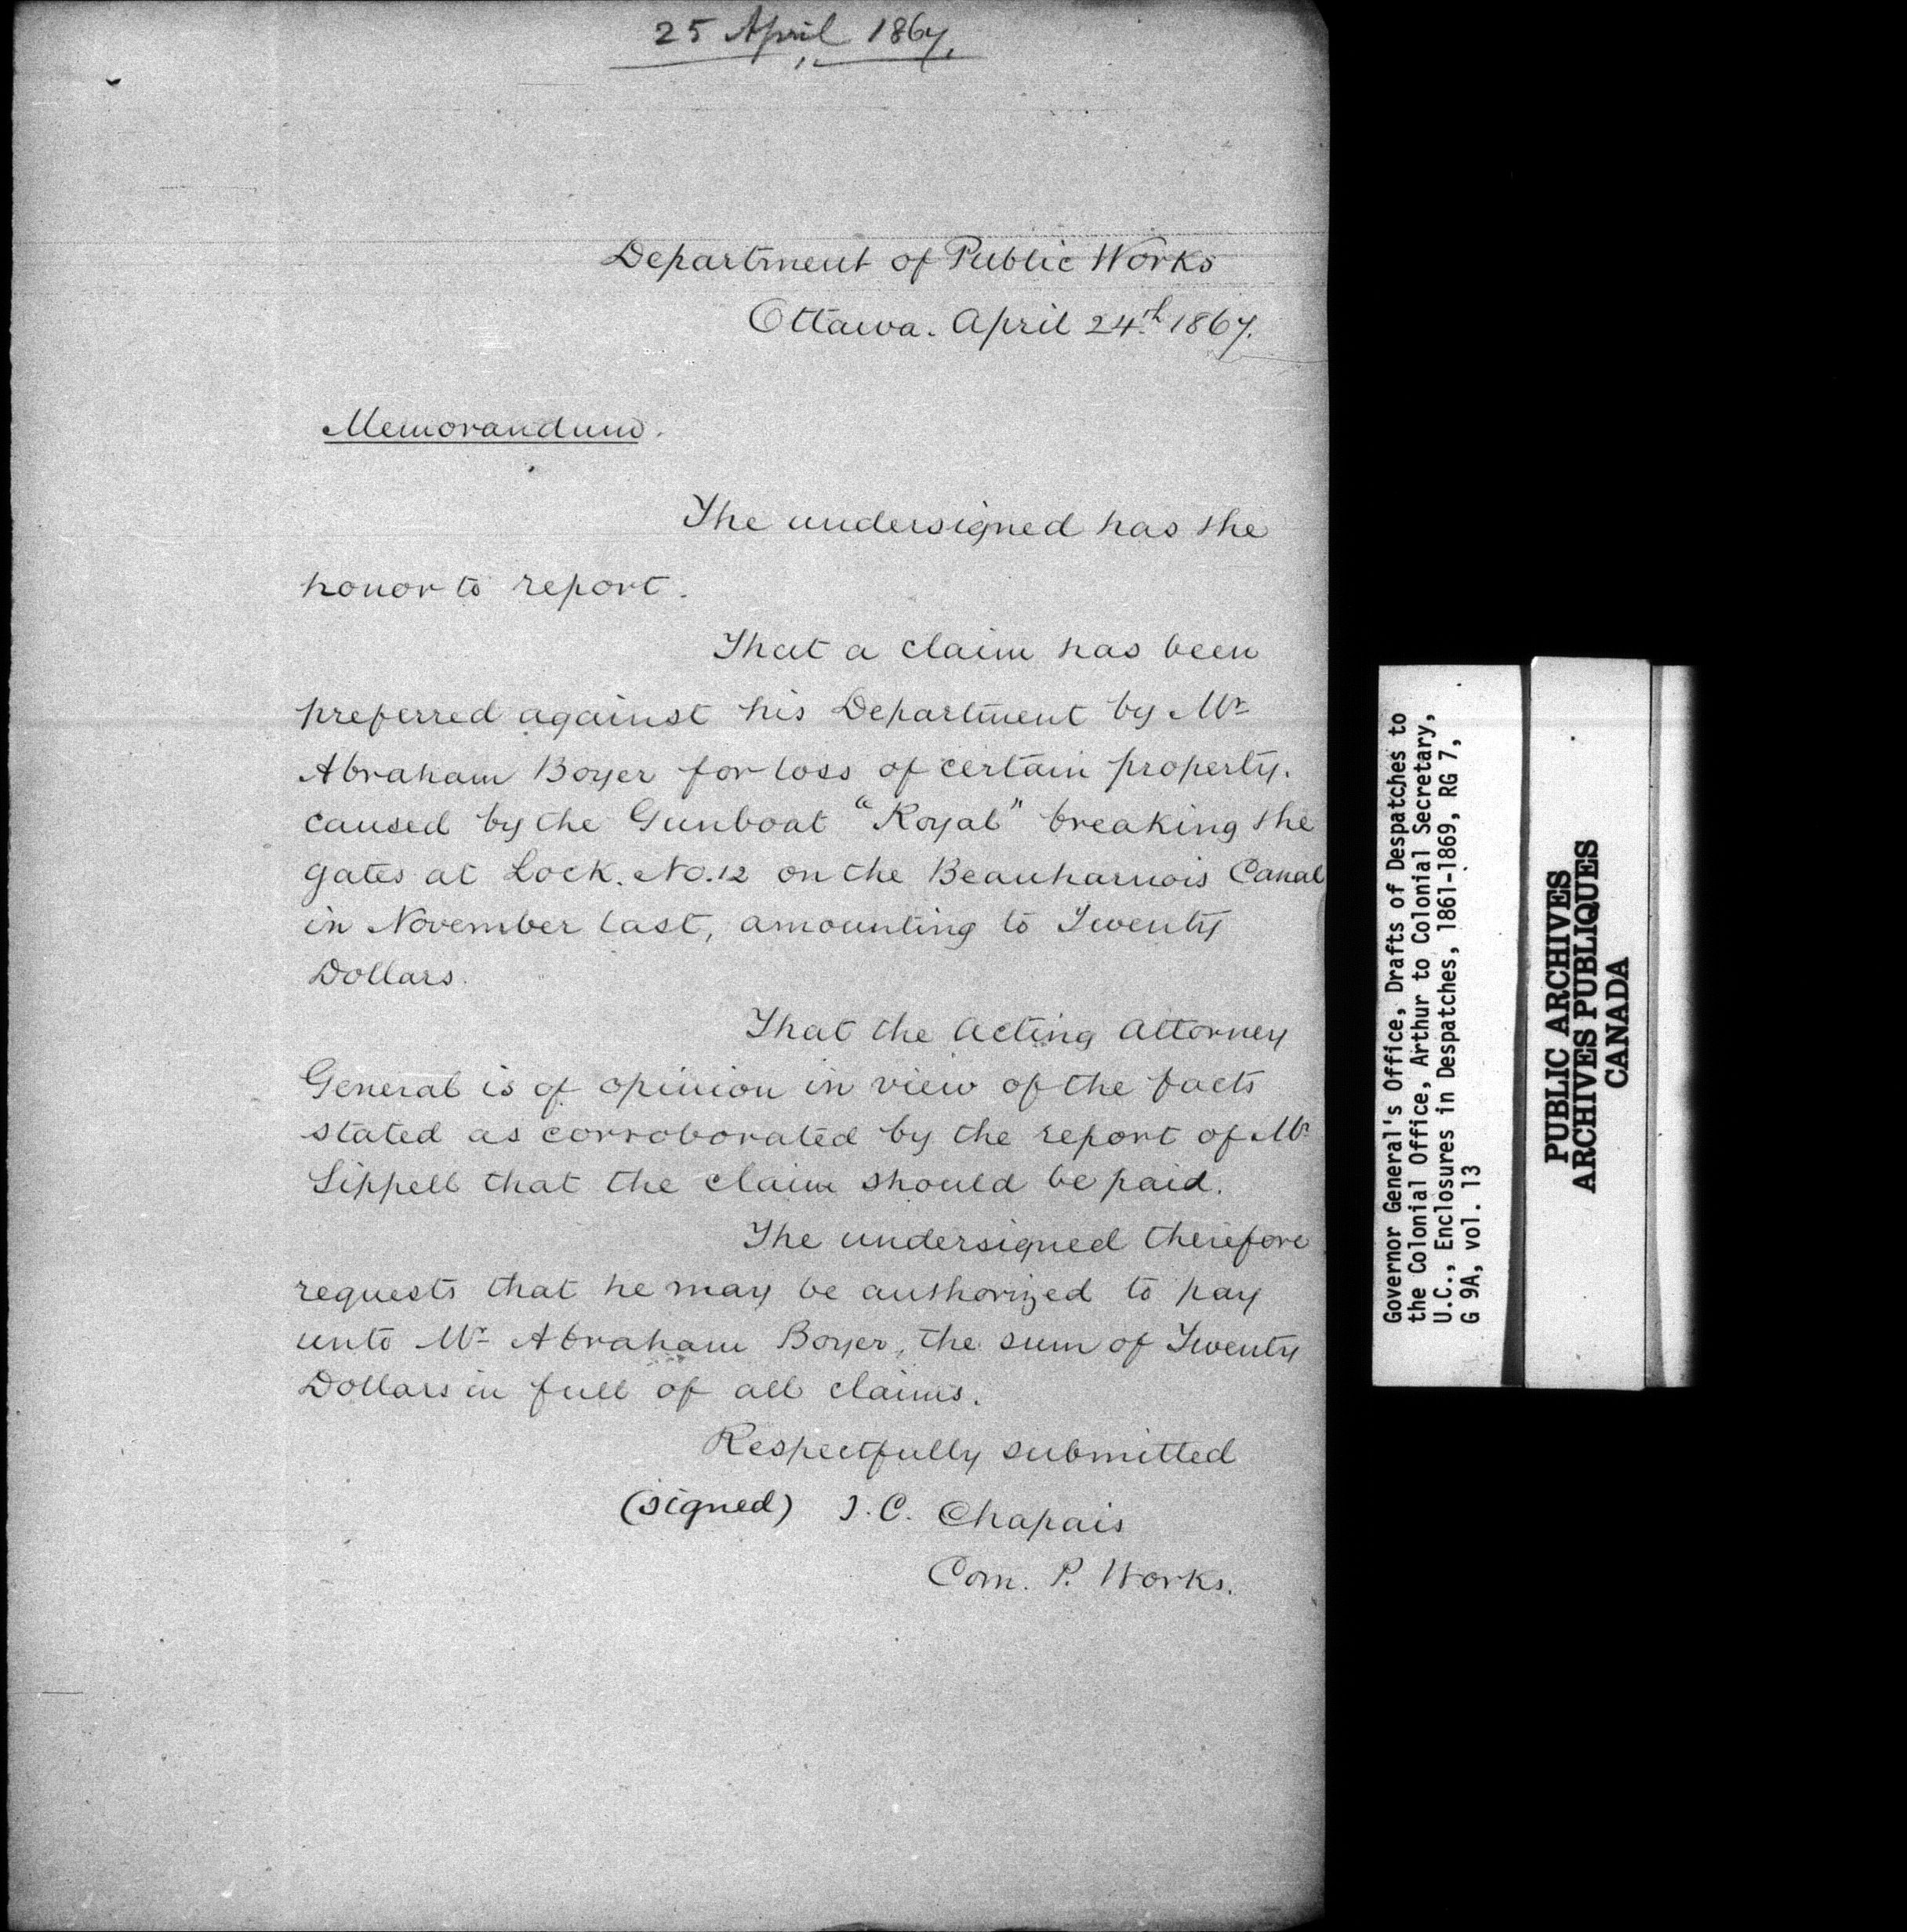 25 April 1867.
Department of Public Works
Ottawa. April 24th 1867.
Memorandum.
The undersigned has the
honor to report.
That a claim has been
preferred against his Department by Mr
Abraham Boyer for loss of certain property.
caused by the Gunboat "Royal" breaking the
gates at Lock. No. 12 on the Beauharnois Canal
in November last, amounting to Twenty
Dollars.
That the Acting Attorney
General is of opinion in view of the facts
stated as corroborated by the report of Mr
Sippell that the claim should be paid.
The undersigned therefore
requests that he may be authorized to pay
unto Mr Abraham Boyer, the sum of Twenty
Dollars in full of all claims.
Respectfully submitted
(signed) J. C. Chapais
Com. P. Works.
Governor General's Office, Drafts of Despatches to
the Colonial Office, Arthur to Colonial Secretary,
U.C., Enclosures in Despatches, 1861-1869, RG 7,
G 9A, vol. 13
PUBLIC ARCHIVES
ARCHIVES PUBLIQUES
CANADA